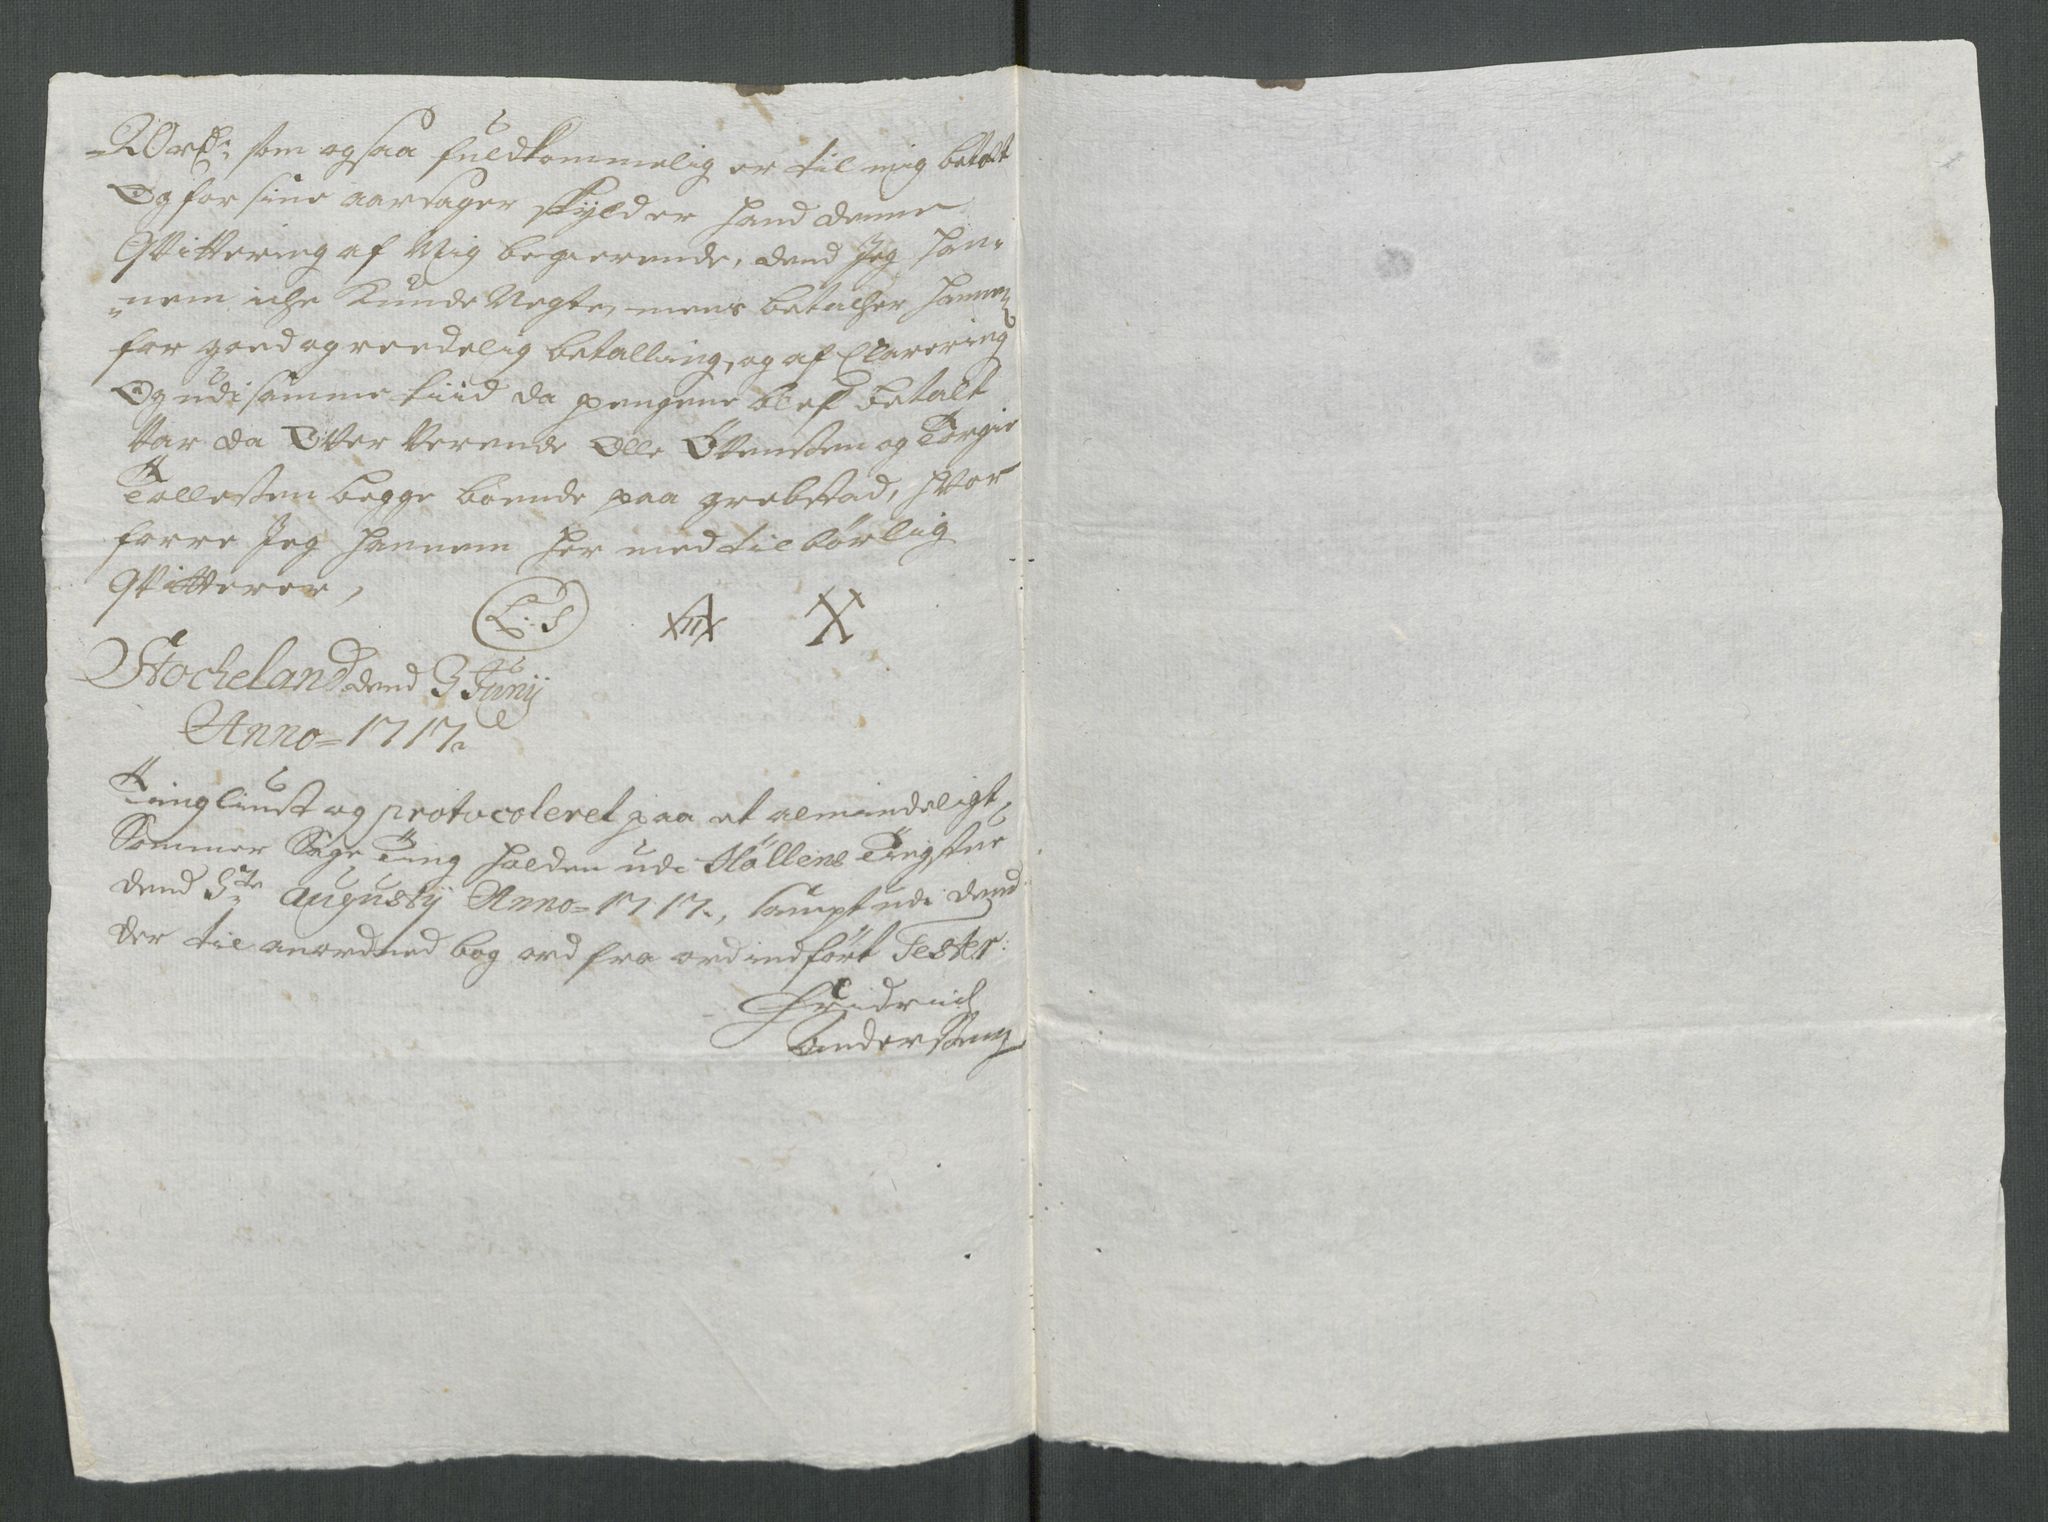 som ogsaa fuldkommelig er til mig betalt
Og for sine aarsager skyld er hand denne
Qvittering af Mig begierende, dend Jeg han-
nem iche Kunde Negte, mens betacher hannem
for goed og reedelig betalling, og af Clarering
Og udi samme tiid da pengene blef betalt
Var da Over Verende Olle Evenssen og Torgie
Tollefsen begge boende paa grebstad, hvor
forre Jeg hannem her med tilbørlig
Qvitterer,
L:S
Stocheland dend 3 Junij
Anno=1717.
Tingliust og protocoleret paa et almindeligt
Sommer Sage Ting holden udi Høllens Tingstue
dend 3te Augustij Anno=1717., sampt udi dend
der til anordned bog ord fra ord indført Tester:
Fridrich
Anderssen